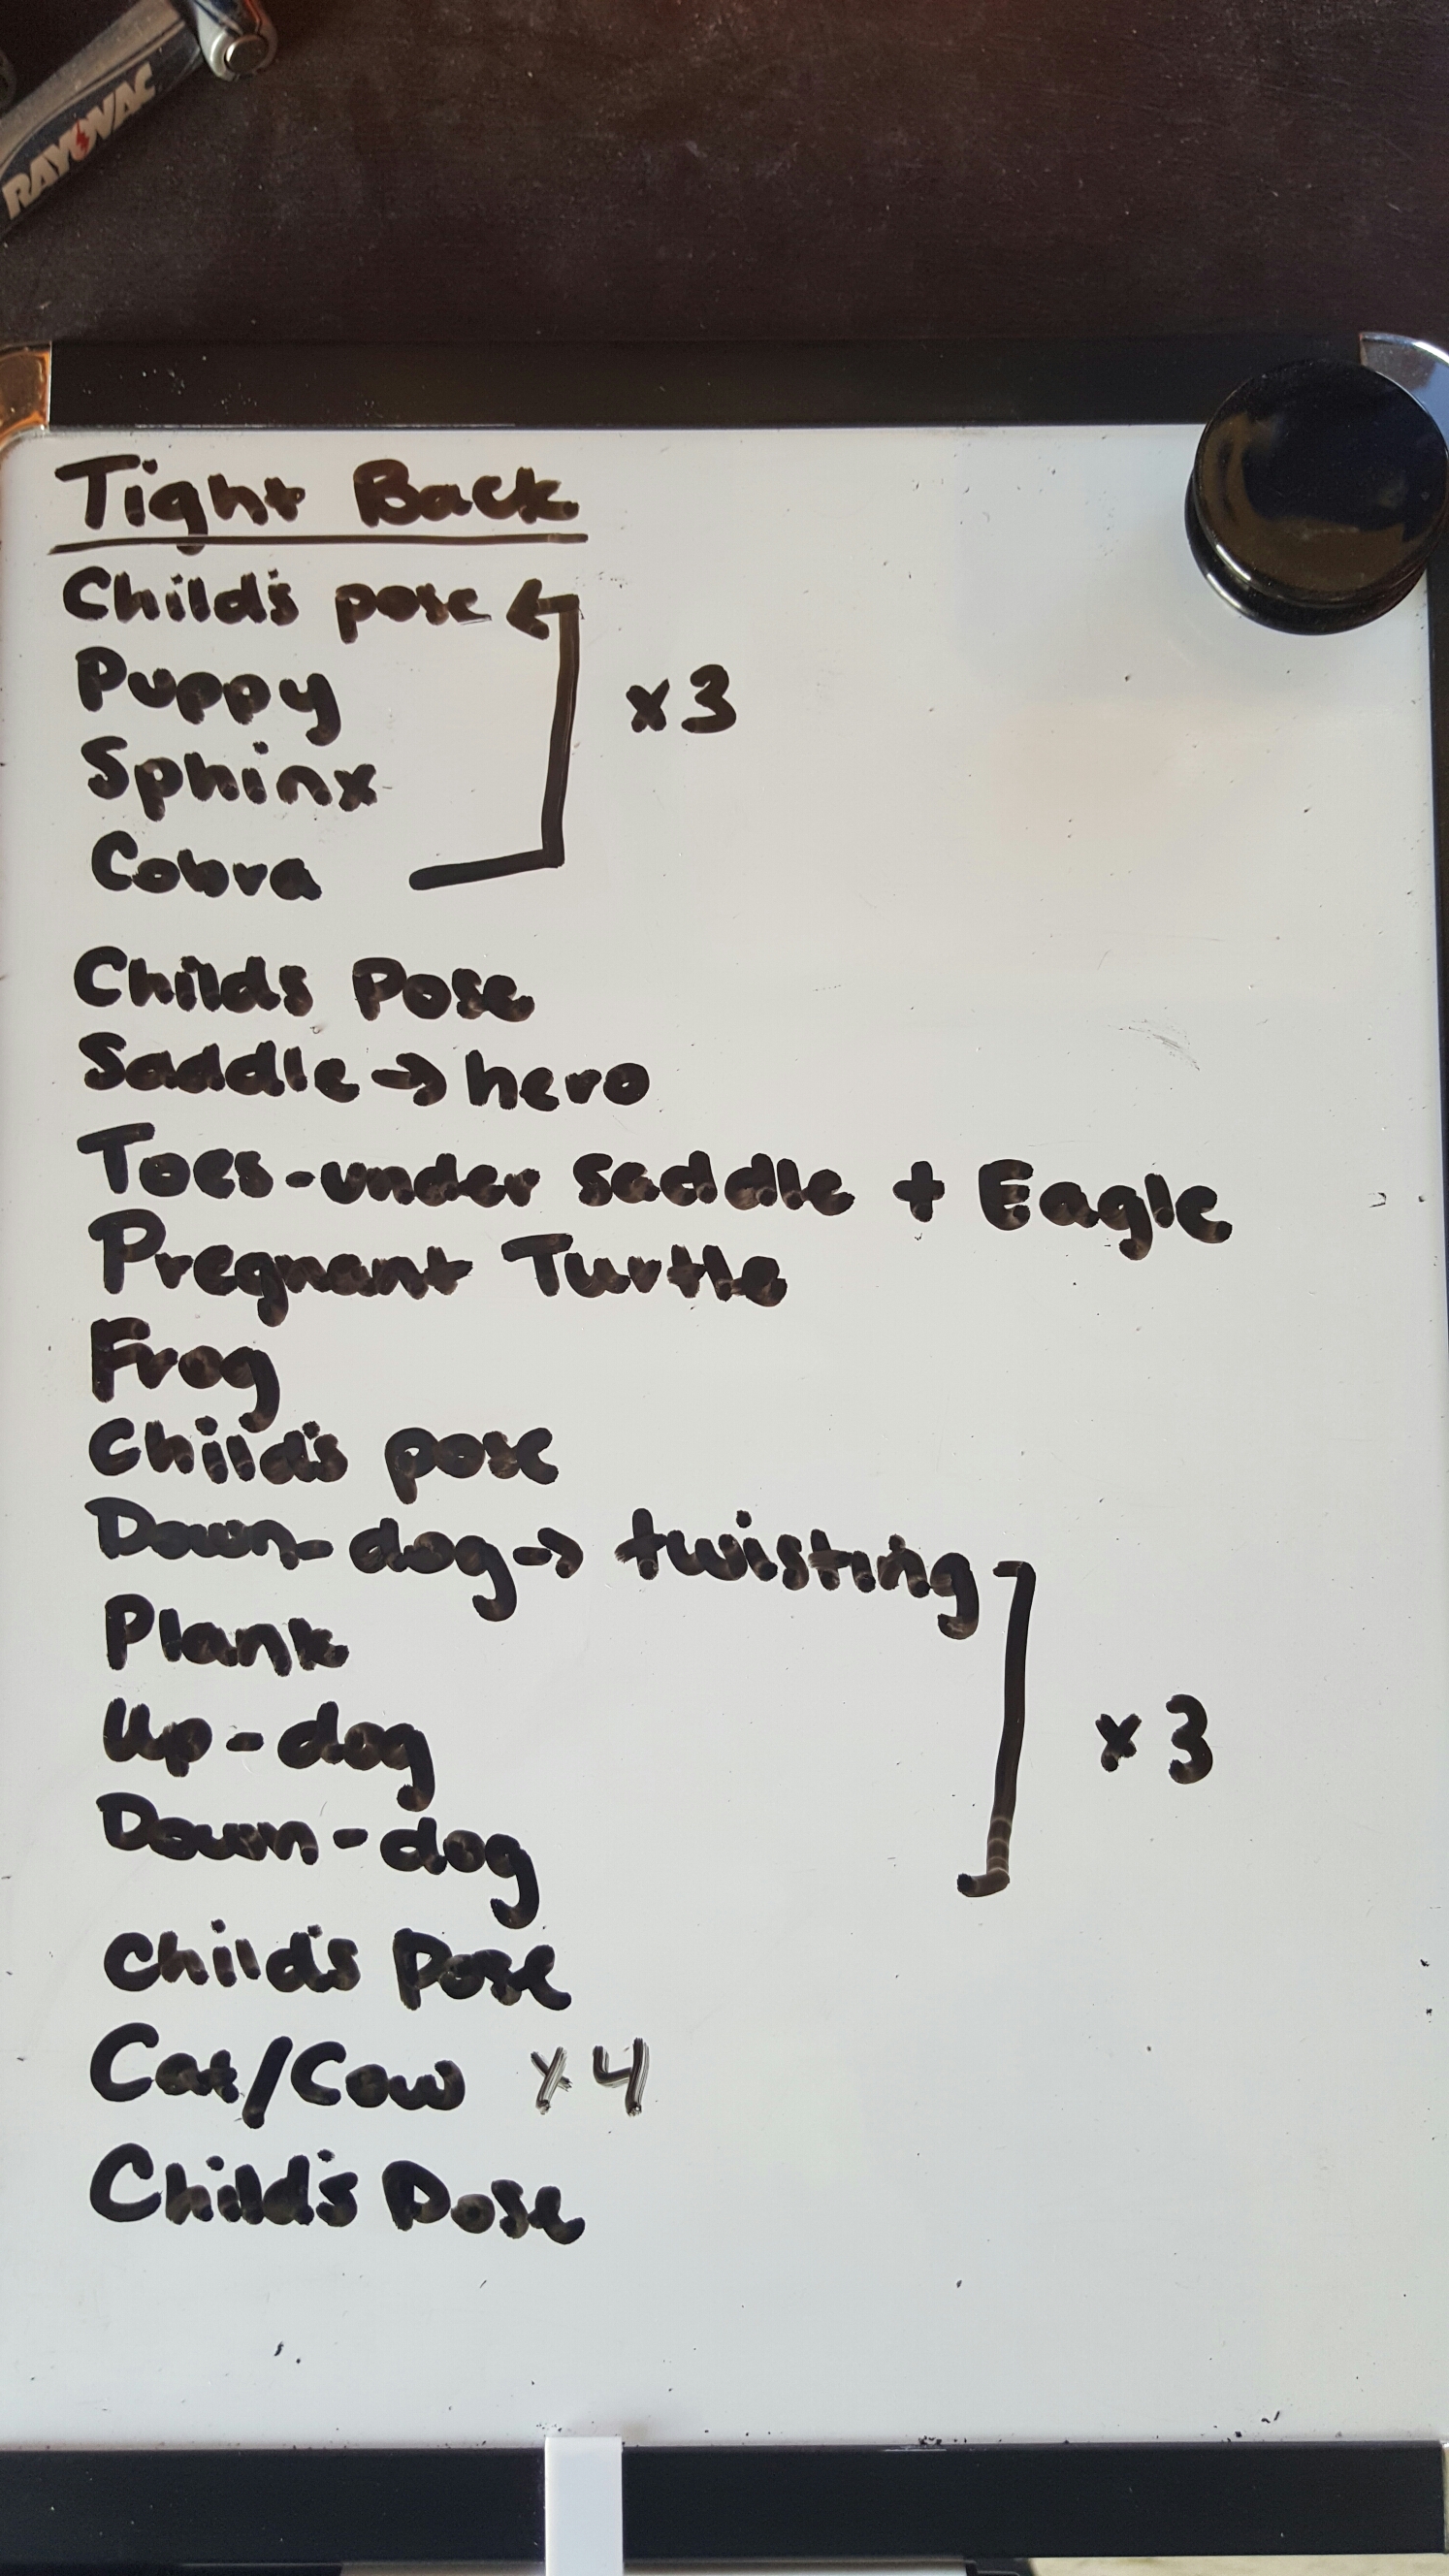 RAYOVAC
Tight Back
Child's pose ←
Puppy
x3
Sphinx
Cobra
Childs Pose
Saddle → hero
Toes-under saddle + Eagle
Pregnant Turtle
Frog
Child's pose
Down-dog → twisting
Plank
Up-dog
x3
Down-dog
Child's Pose
Cat/Cow x4
Child's Pose